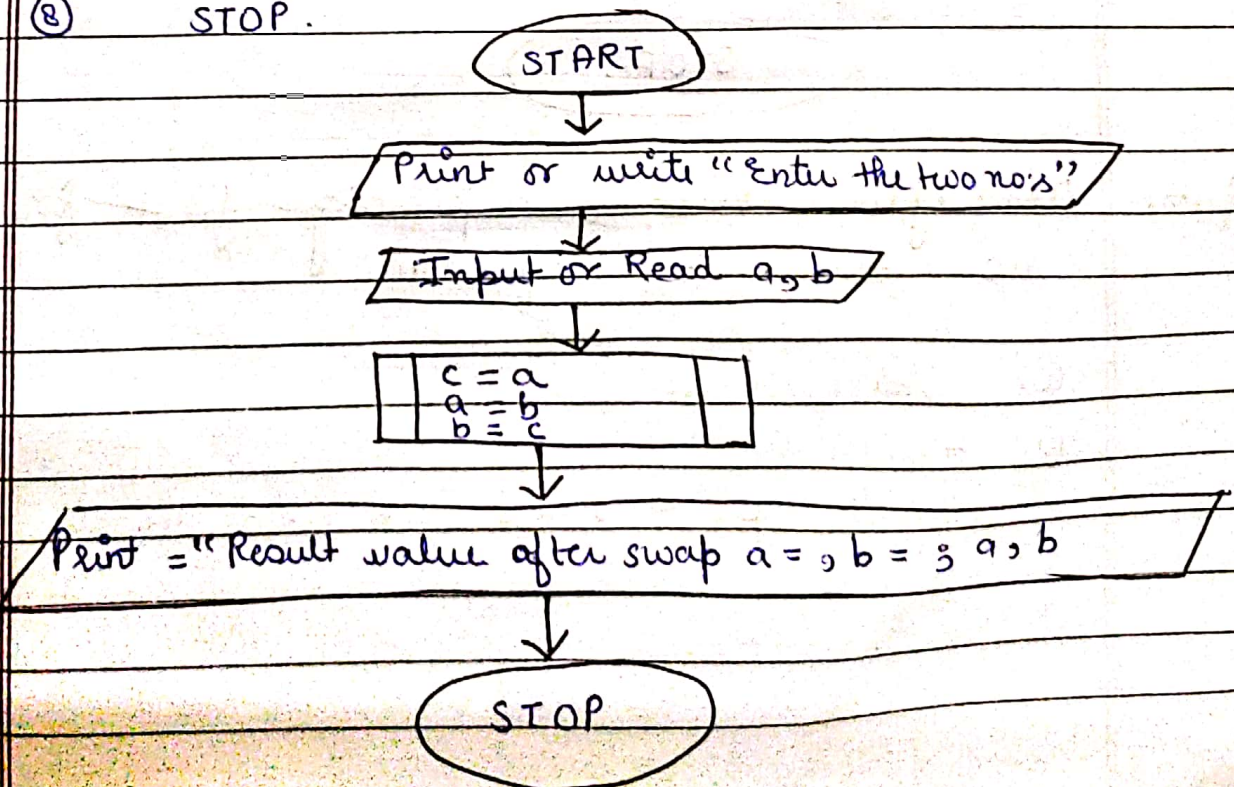 ⑧ STOP.
START
Print or write "Enter the two no's"
Input or Read a, b
c = a
a = b
b = c
Print = "Result value after swap a = , b = ; a, b
STOP